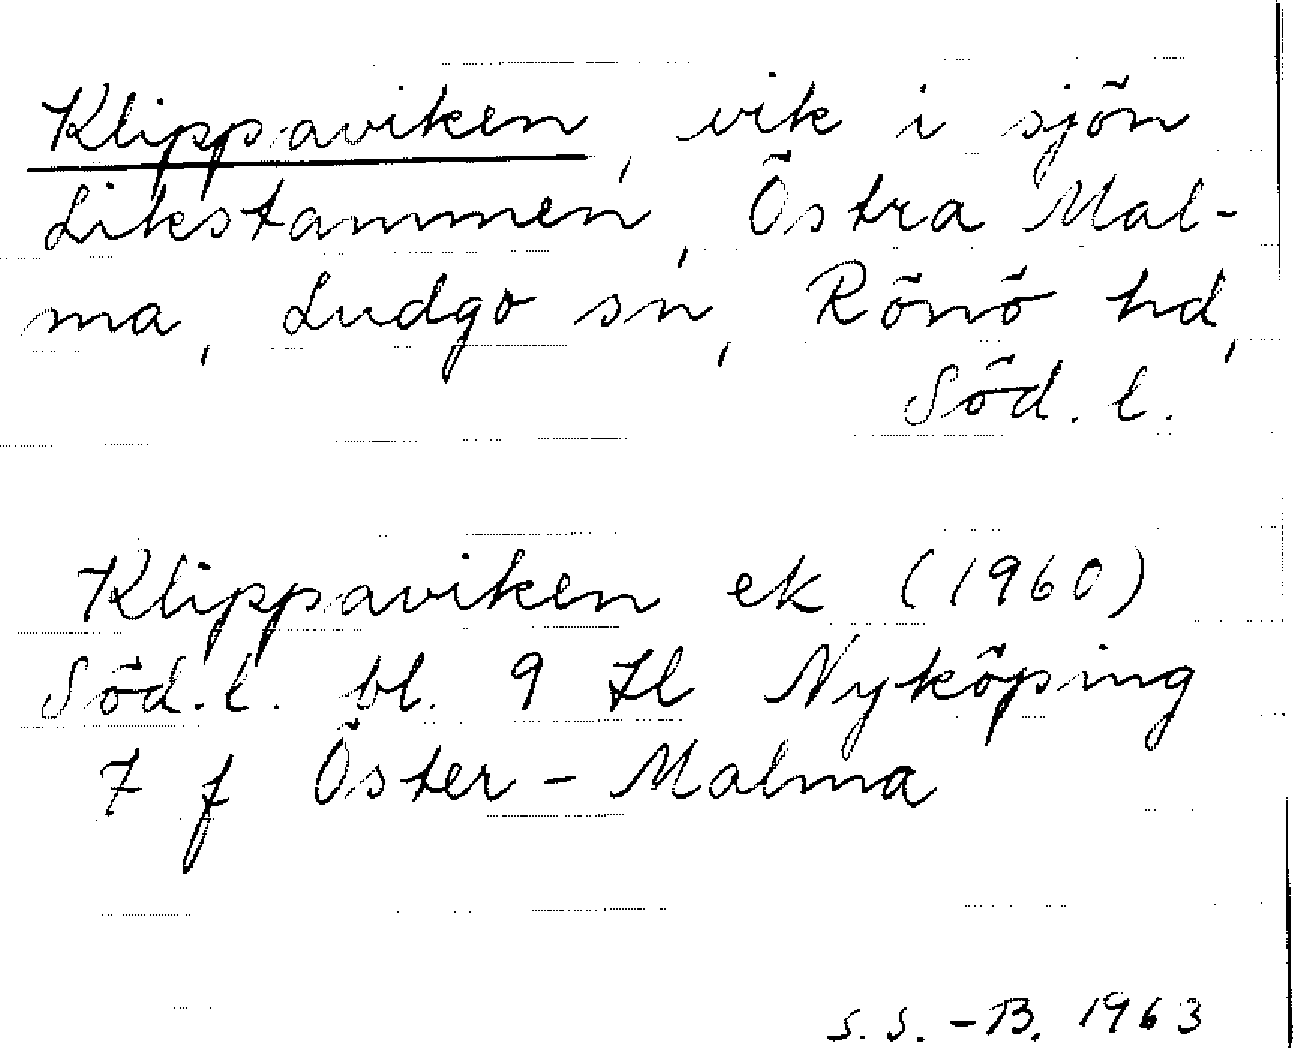 Klippaviken, vik i sjön
Likstammen, Östra Mal-
ma, Ludgo sn, Rönö hd,
Söd. l.
Klippaviken ek (1960)
Söd. l. bl. 9 H l Nyköping
7 f Öster-Malma
S.S.-B. 1963